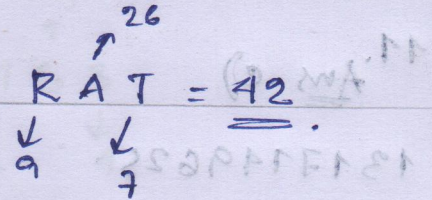 26
R A T = 42.
9 7